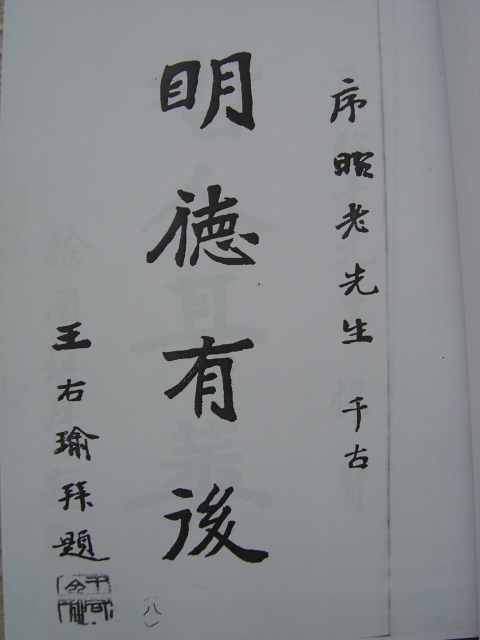 序昭老先生 千古
明德有後
王右瑜拜題
(八)